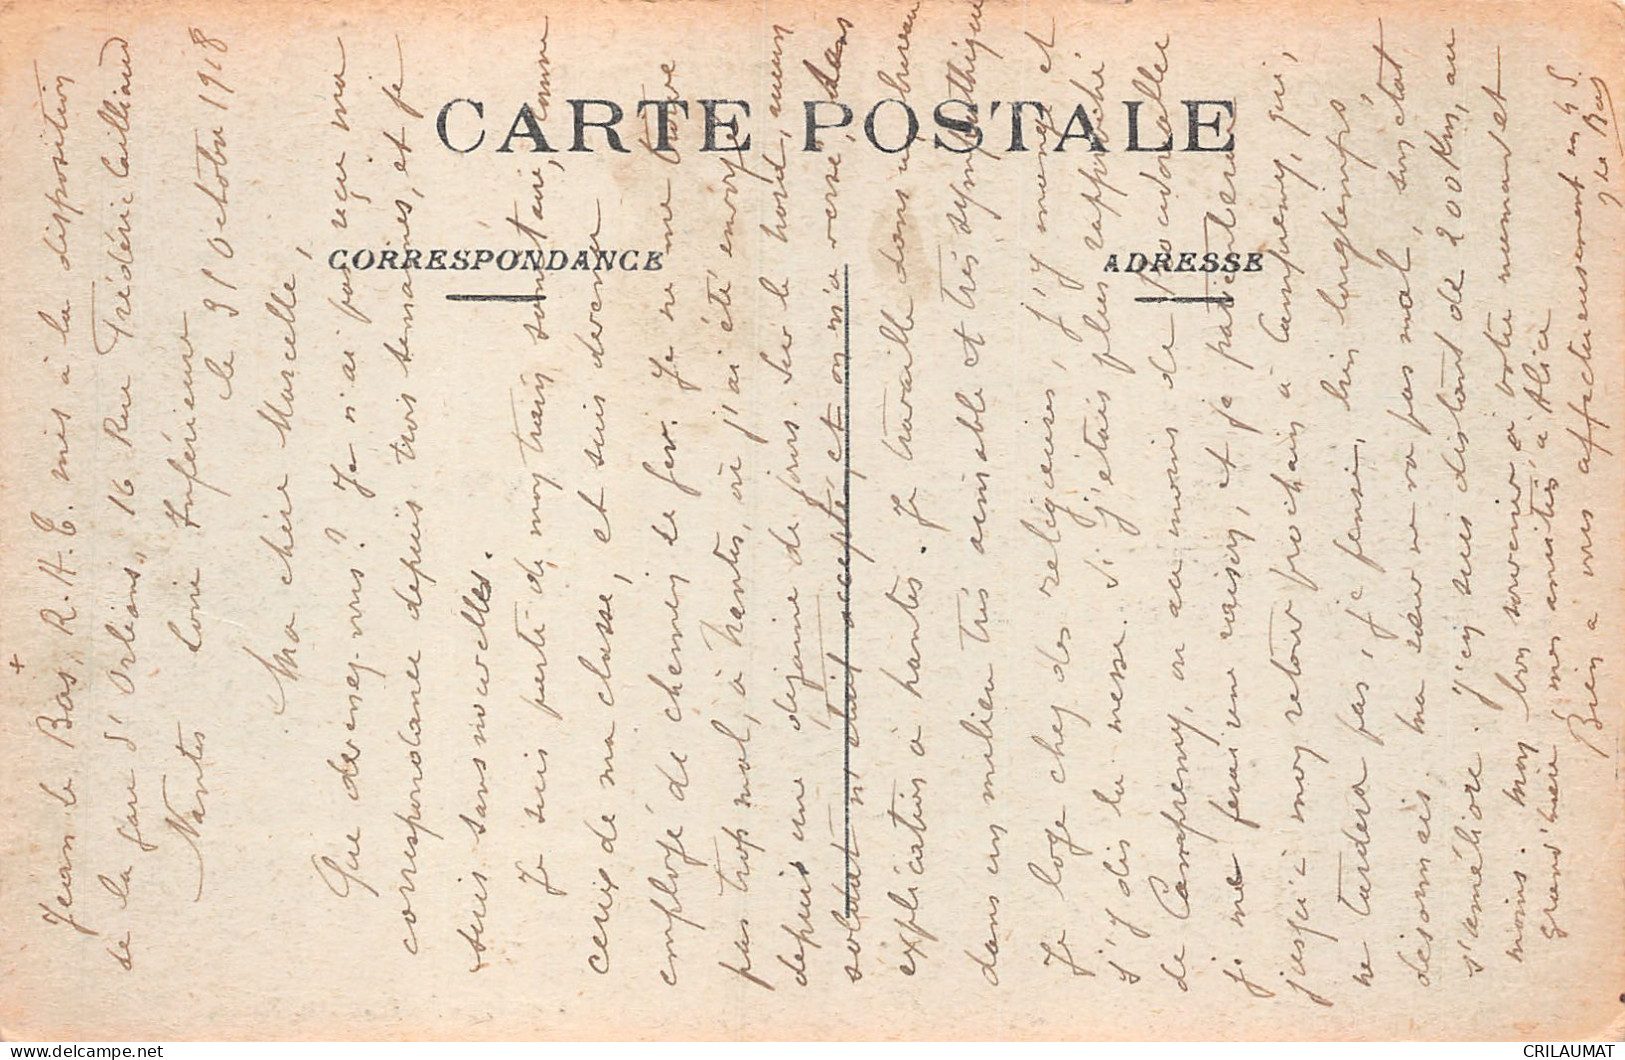 CARTE POSTALE
CORRESPONDANCE
ADRESSE
Jean le Bas, R.A.T. mis à la disposition
de la gare d'Orléans, 16 Rue Frédéric Cailliaud
Nantes Loire Inférieure
le 31 Octobre 1918
Ma chère Marcelle,
Que devenez-vous? Je n'ai pas reçu ma
correspondance depuis trois semaines, et je
suis sans nouvelles.
Je suis parti de mon train sanitaire, comme
ceux de ma classe, et suis devenu
employé de chemin de fer. Je ne me trouve
pas trop mal, à Nantes, où j'ai été envoyé
depuis une dizaine de jours. Sur le front, aucun
soldat n'était accepté et on m'a versé dans
explication à Nantes. Je travaille dans un bureau
dans un milieu très aimable et très sympathique
Je loge chez des religieuses, j'y mange et
j'y dis la messe. Si j'étais plus rapproché
de Campremy, ou au moins de
je me ferais une raison, et je patienterais
jusqu'à mon retour prochain à Campremy, qui,
ne tardera pas, je pense, bien longtemps
désormais. Ma sœur va pas mal, son état
s'améliore. J'en suis distant de 200 Km, au
moins. Mon bon souvenir à votre maman et
grand'mère & mes amitiés à Alice
Bien à vous affectueusement en N. S.
J. Le Bas
CRILAUMAT